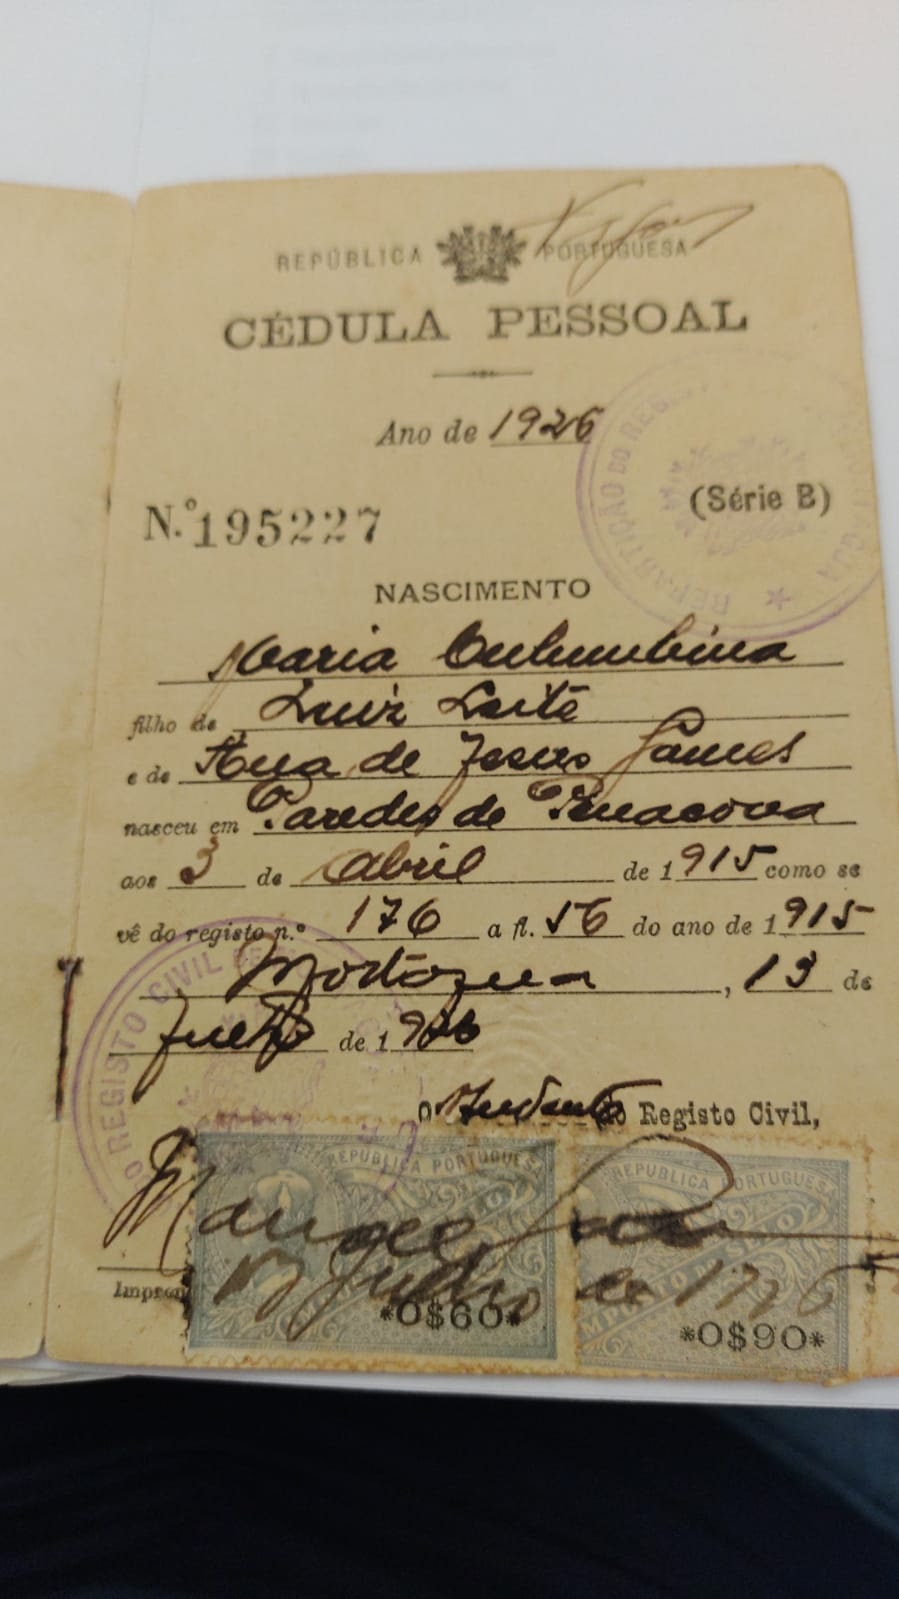 REPÚBLICA PORTUGUESA
CÉDULA PESSOAL
Ano de 1926
N.º 195227 (Série B)
REPARTIÇÃO DO REGIS
NASCIMENTO
Maria Columbina
filho de Luiz Leite
e de Ana de Jesus Gomes
nasceu em Paredes de Penacova
aos 3 de Abril de 1915 como se
vê do registo n.º 176 a fl. 56 do ano de 1915
Mortagua, 13 de
Julho de 1926
O Ajudante do Registo Civil,
O REGISTO CIVIL
REPÚBLICA PORTUGUESA REPÚBLICA PORTUGUESA
IMPOSTO DO SELO
Manoel
13 Julho de 1926
*0$60* *0$90*
Impren